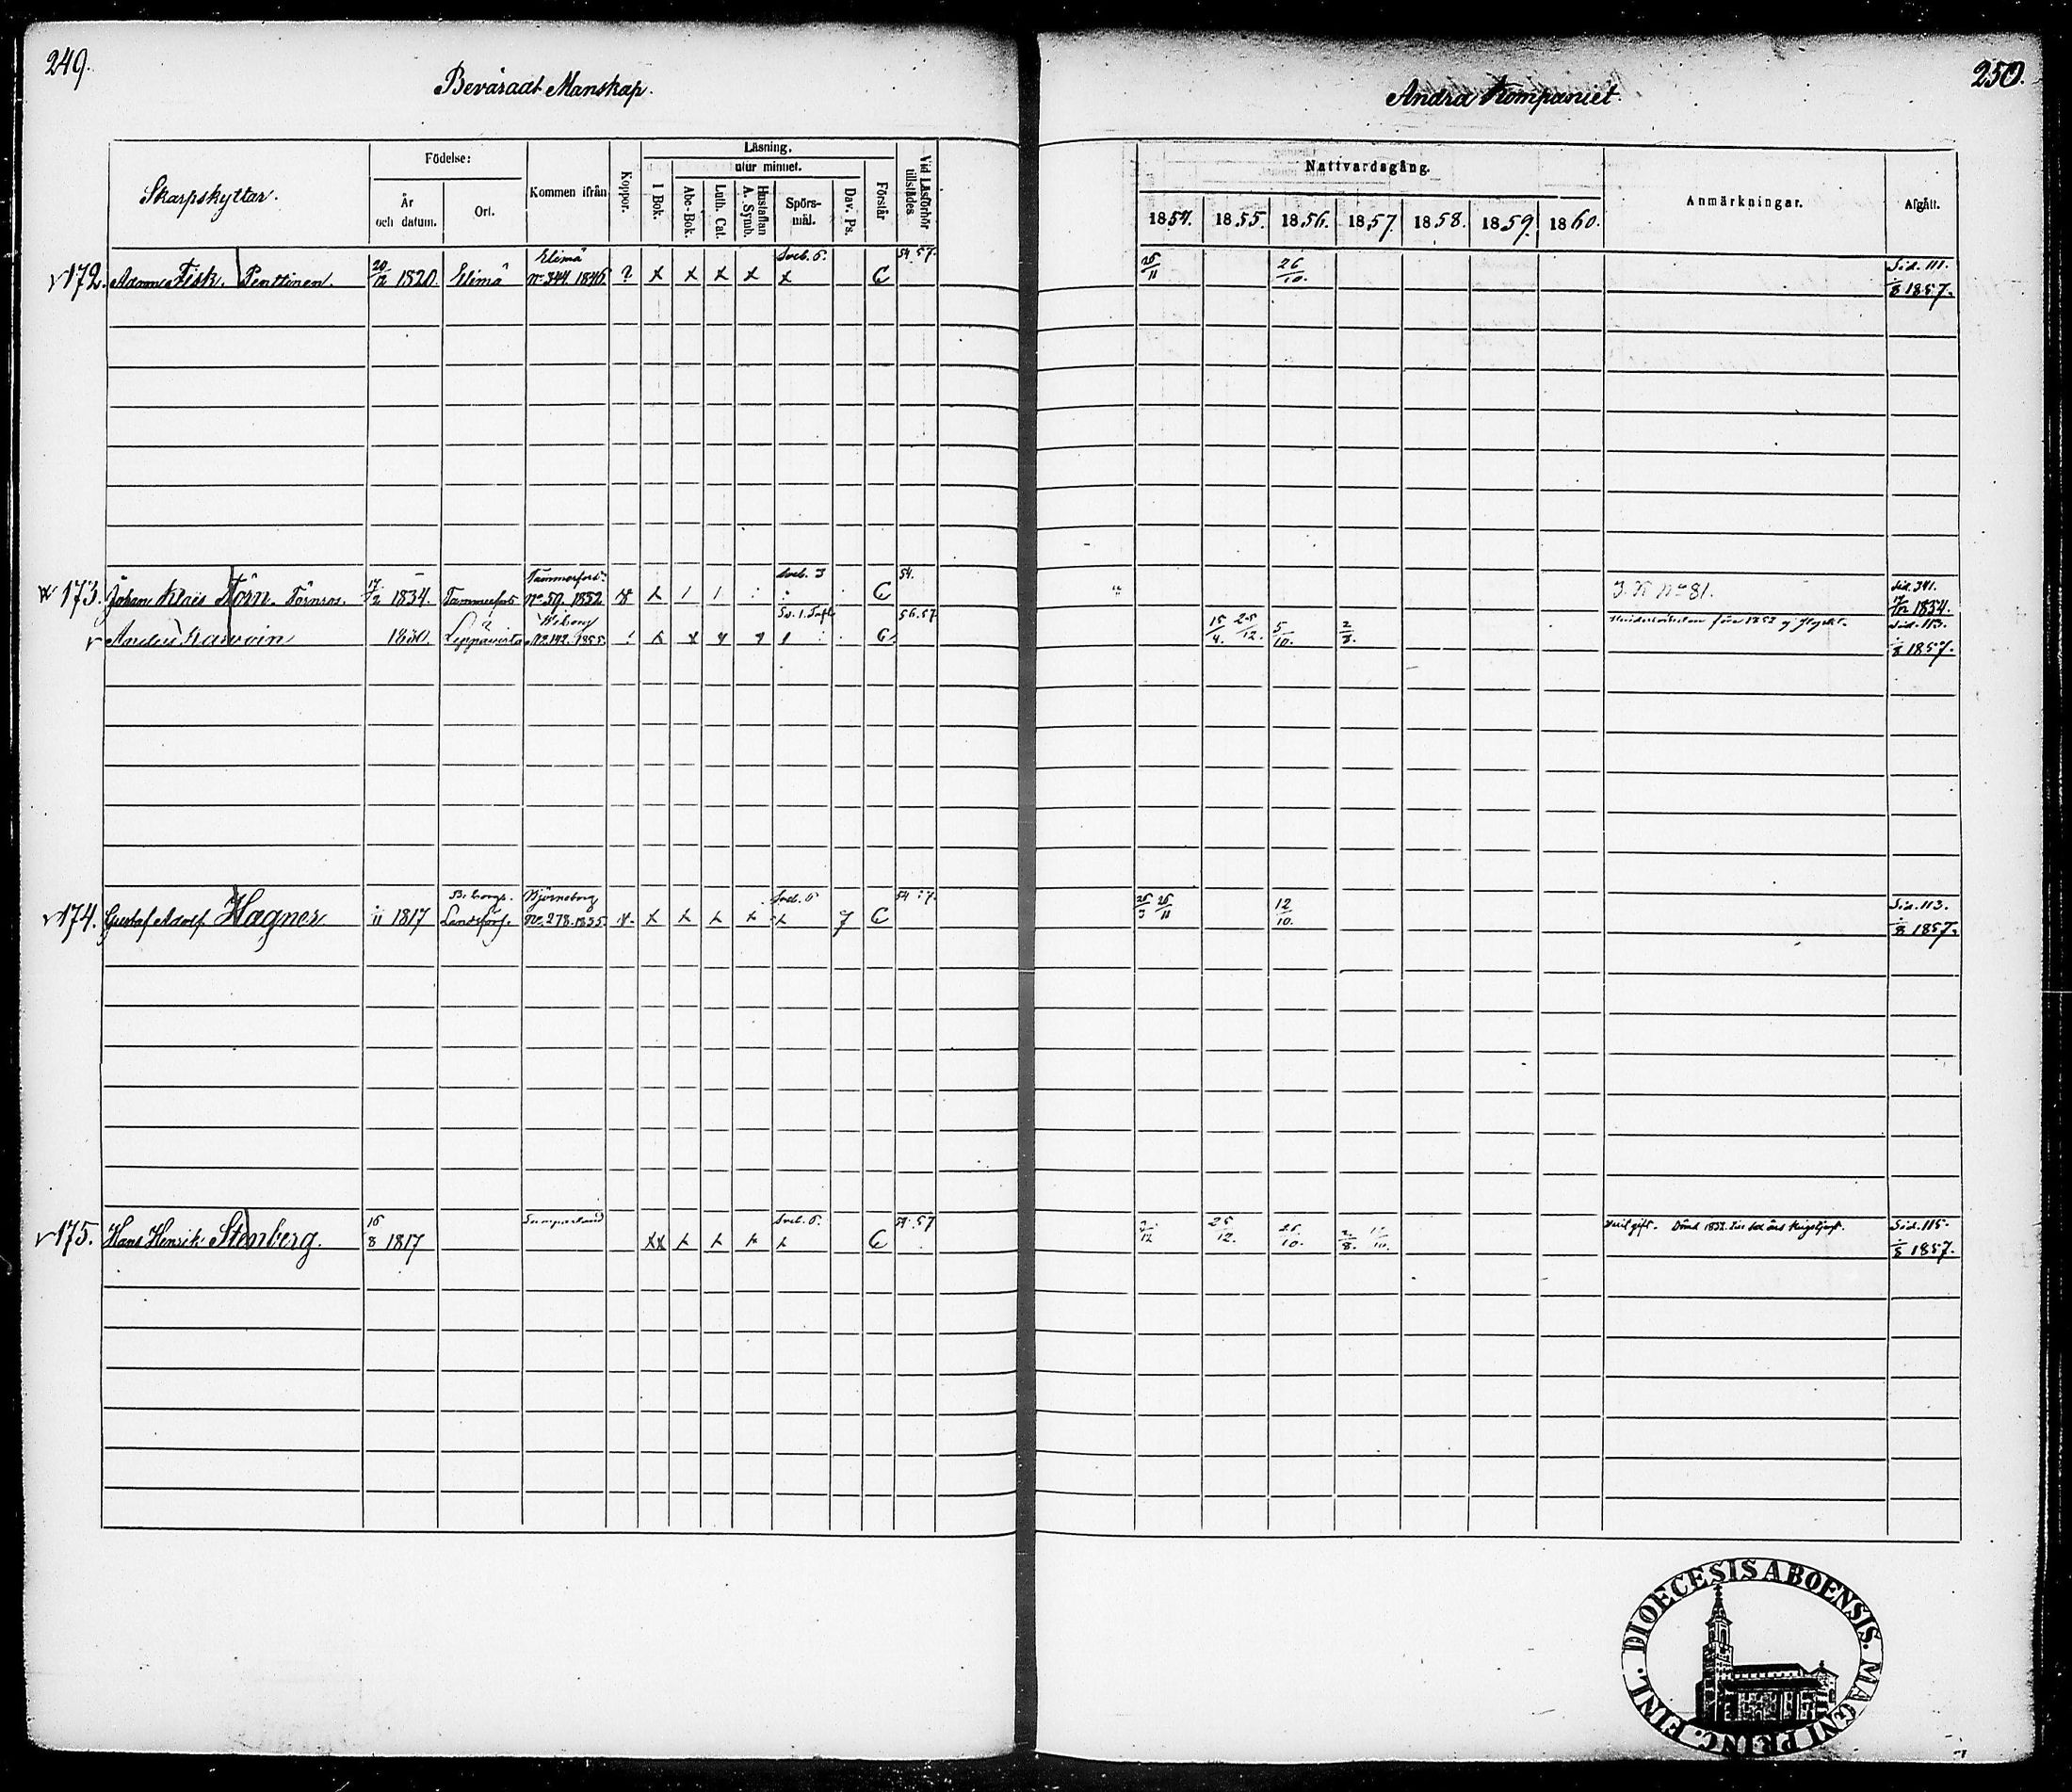 249.
Beväradt Manskap.
Andra Kompaniet.
250.
Skarpskyttar.
Födelse:
År och datum.
Ort.
Kommen ifrån
Koppor.
Läsning.
I Bok.
utur minnet.
Abc-Bok.
Luth. Cat.
Hustaflan A. Symb.
Spörsmål.
Dav. Ps.
Förstår
Vid Läsförhör tillstädes.
Nattvardsgång.
1854. 1855. 1856. 1857. 1858. 1859. 1860.
Anmärkningar.
Afgått.
172. Fisk. Penttinen. 20/12 1820. Elimä Elimä No 344. 1846. ? x x x x Sveb. 5. x C 54. 57. 25/11 26/10. Sid. 111. 8 1857.
173. Johan Klaës Törn. Törnros. 17/2 1834. Tammerfors Tammerfors No 59. 1852 Sveb. 3 C 54. I. K. No 81. Sid. 341. 1854.
Anders 1830. Leppävirta Wiborg No 142. 1855. C. 56. 57 15/4. 25/12. 5/10. 2/8. Sid. 113. 8 1857.
174. Gustaf Adolf Hagner. 11 1817 Björneborg No. 278. 1835. x x x x Sveb. 5 x 7 C 25/3 25/11 12/10. Sid. 113. 8 1857.
175. Hans Henrik Stenberg. 16/8 1817 xx x x x Sveb. 5. x C 54. 57 2/12 25/12. 26/10. 2/8. Sid. 115. 8 1857.
DIOECESIS ABOENSIS. MAGNI PRINC. FINL.